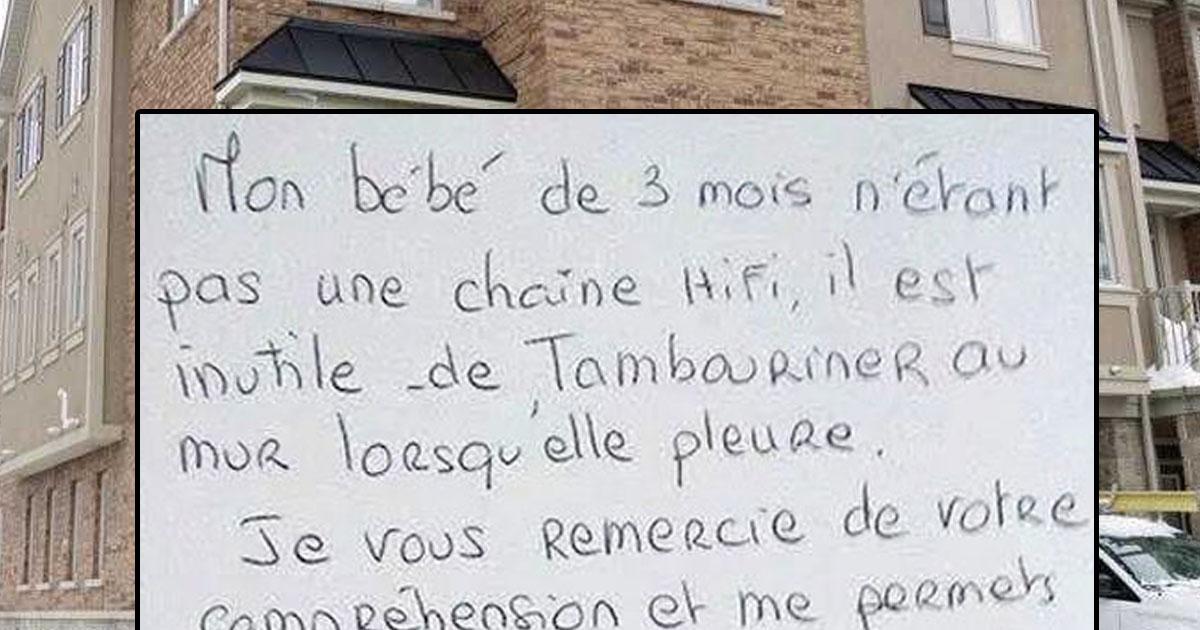 Mon bébé de 3 mois n'étant
pas une chaîne Hifi, il est
inutile de Tambouriner au
mur lorsqu'elle pleure.
Je vous remercie de votre
compréhension et me permets